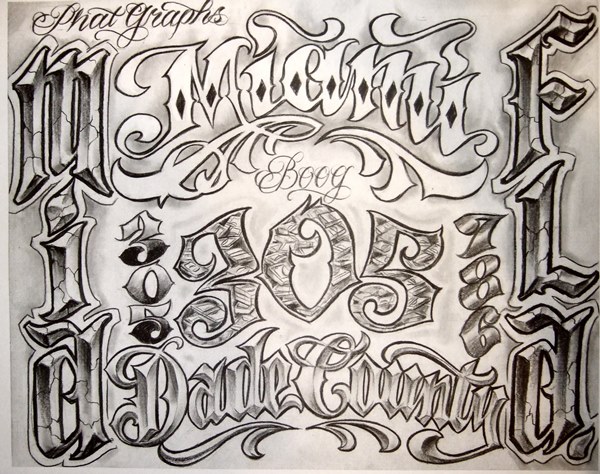 Phat Graphs
Miami
Boog
mia
305
305
786
FLa
Dade County